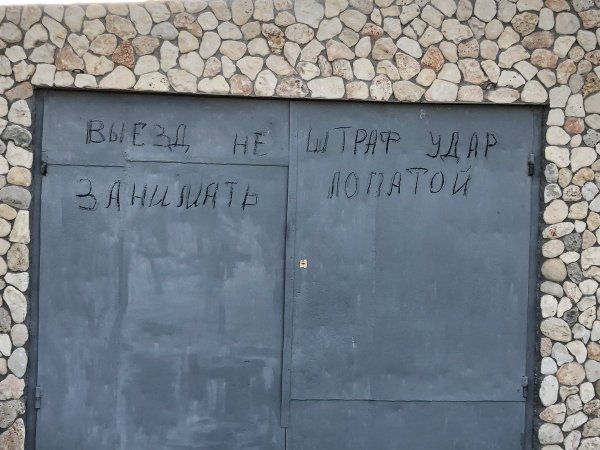 ВЫЕЗД НЕ
ЗАНИМАТЬ
ШТРАФ УДАР
ЛОПАТОЙ